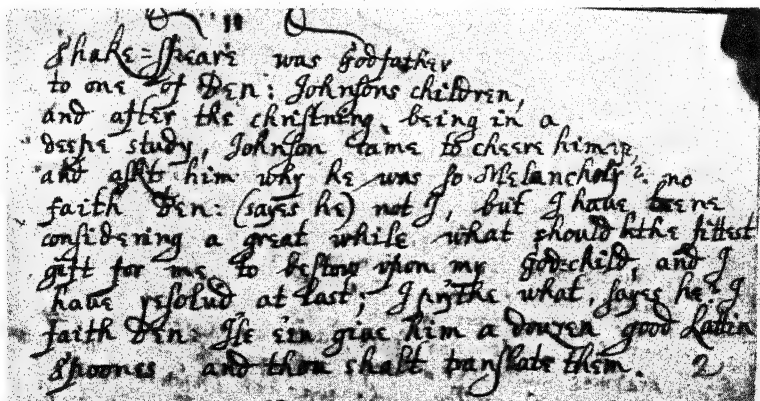 11
Shake=speare was Godfather
to one of Ben: Johnsons children,
and after the christning, being in a
deepe study, Johnson came to cheere him vp,
and askt him why he was so Melancholy?. no
faith Ben: (sayes he) not I, but I haue beene
considering a great while what should bee the fittest
gift for me to bestow vpon my God-child, and I
haue resolud at last; I prythe what, sayes he? I
faith Ben: I'le e'in giue him a douzen good Lattin
Spoones, and thou shalt translate them. 2